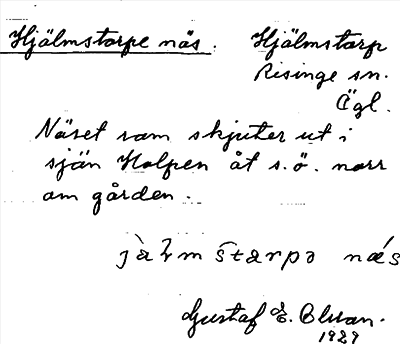 Hjälmstorpe näs. Hjälmstorp
Risinge sn.
Ögl.
Näset som skjuter ut i
sjön Holpen åt s.ö. norr
om gården.
näs
Gustaf E. Olsson.
1929